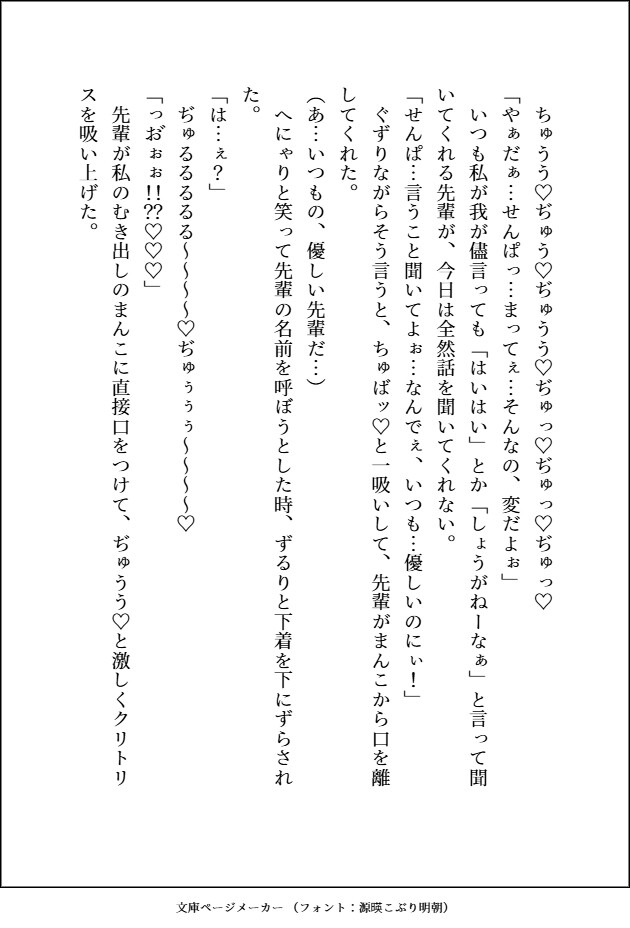 ちゅうう♡ぢゅう♡ぢゅうう♡ぢゅっ♡ぢゅっ♡ぢゅっ♡
「やぁだぁ…せんぱっ…まってぇ…そんなの、変だよぉ」
いつも私が我が儘言っても「はいはい」とか「しょうがねーなぁ」と言って聞
いてくれる先輩が、今日は全然話を聞いてくれない。
「せんぱ…言うこと聞いてよぉ…なんでぇ、いつも…優しいのにぃ！」
ぐずりながらそう言うと、ちゅばッ♡と一吸いして、先輩がまんこから口を離
してくれた。
（あ…いつもの、優しい先輩だ…）
へにゃりと笑って先輩の名前を呼ぼうとした時、ずるりと下着を下にずらされ
た。
「は…ぇ？」
ぢゅるるるるる～～～～♡ぢゅぅぅぅ～～～～♡
「っお゛ぉぉ!!??♡♡♡」
先輩が私のむき出しのまんこに直接口をつけて、ぢゅうう♡と激しくクリトリ
スを吸い上げた。
文庫ページメーカー（フォント：源暎こぶり明朝）